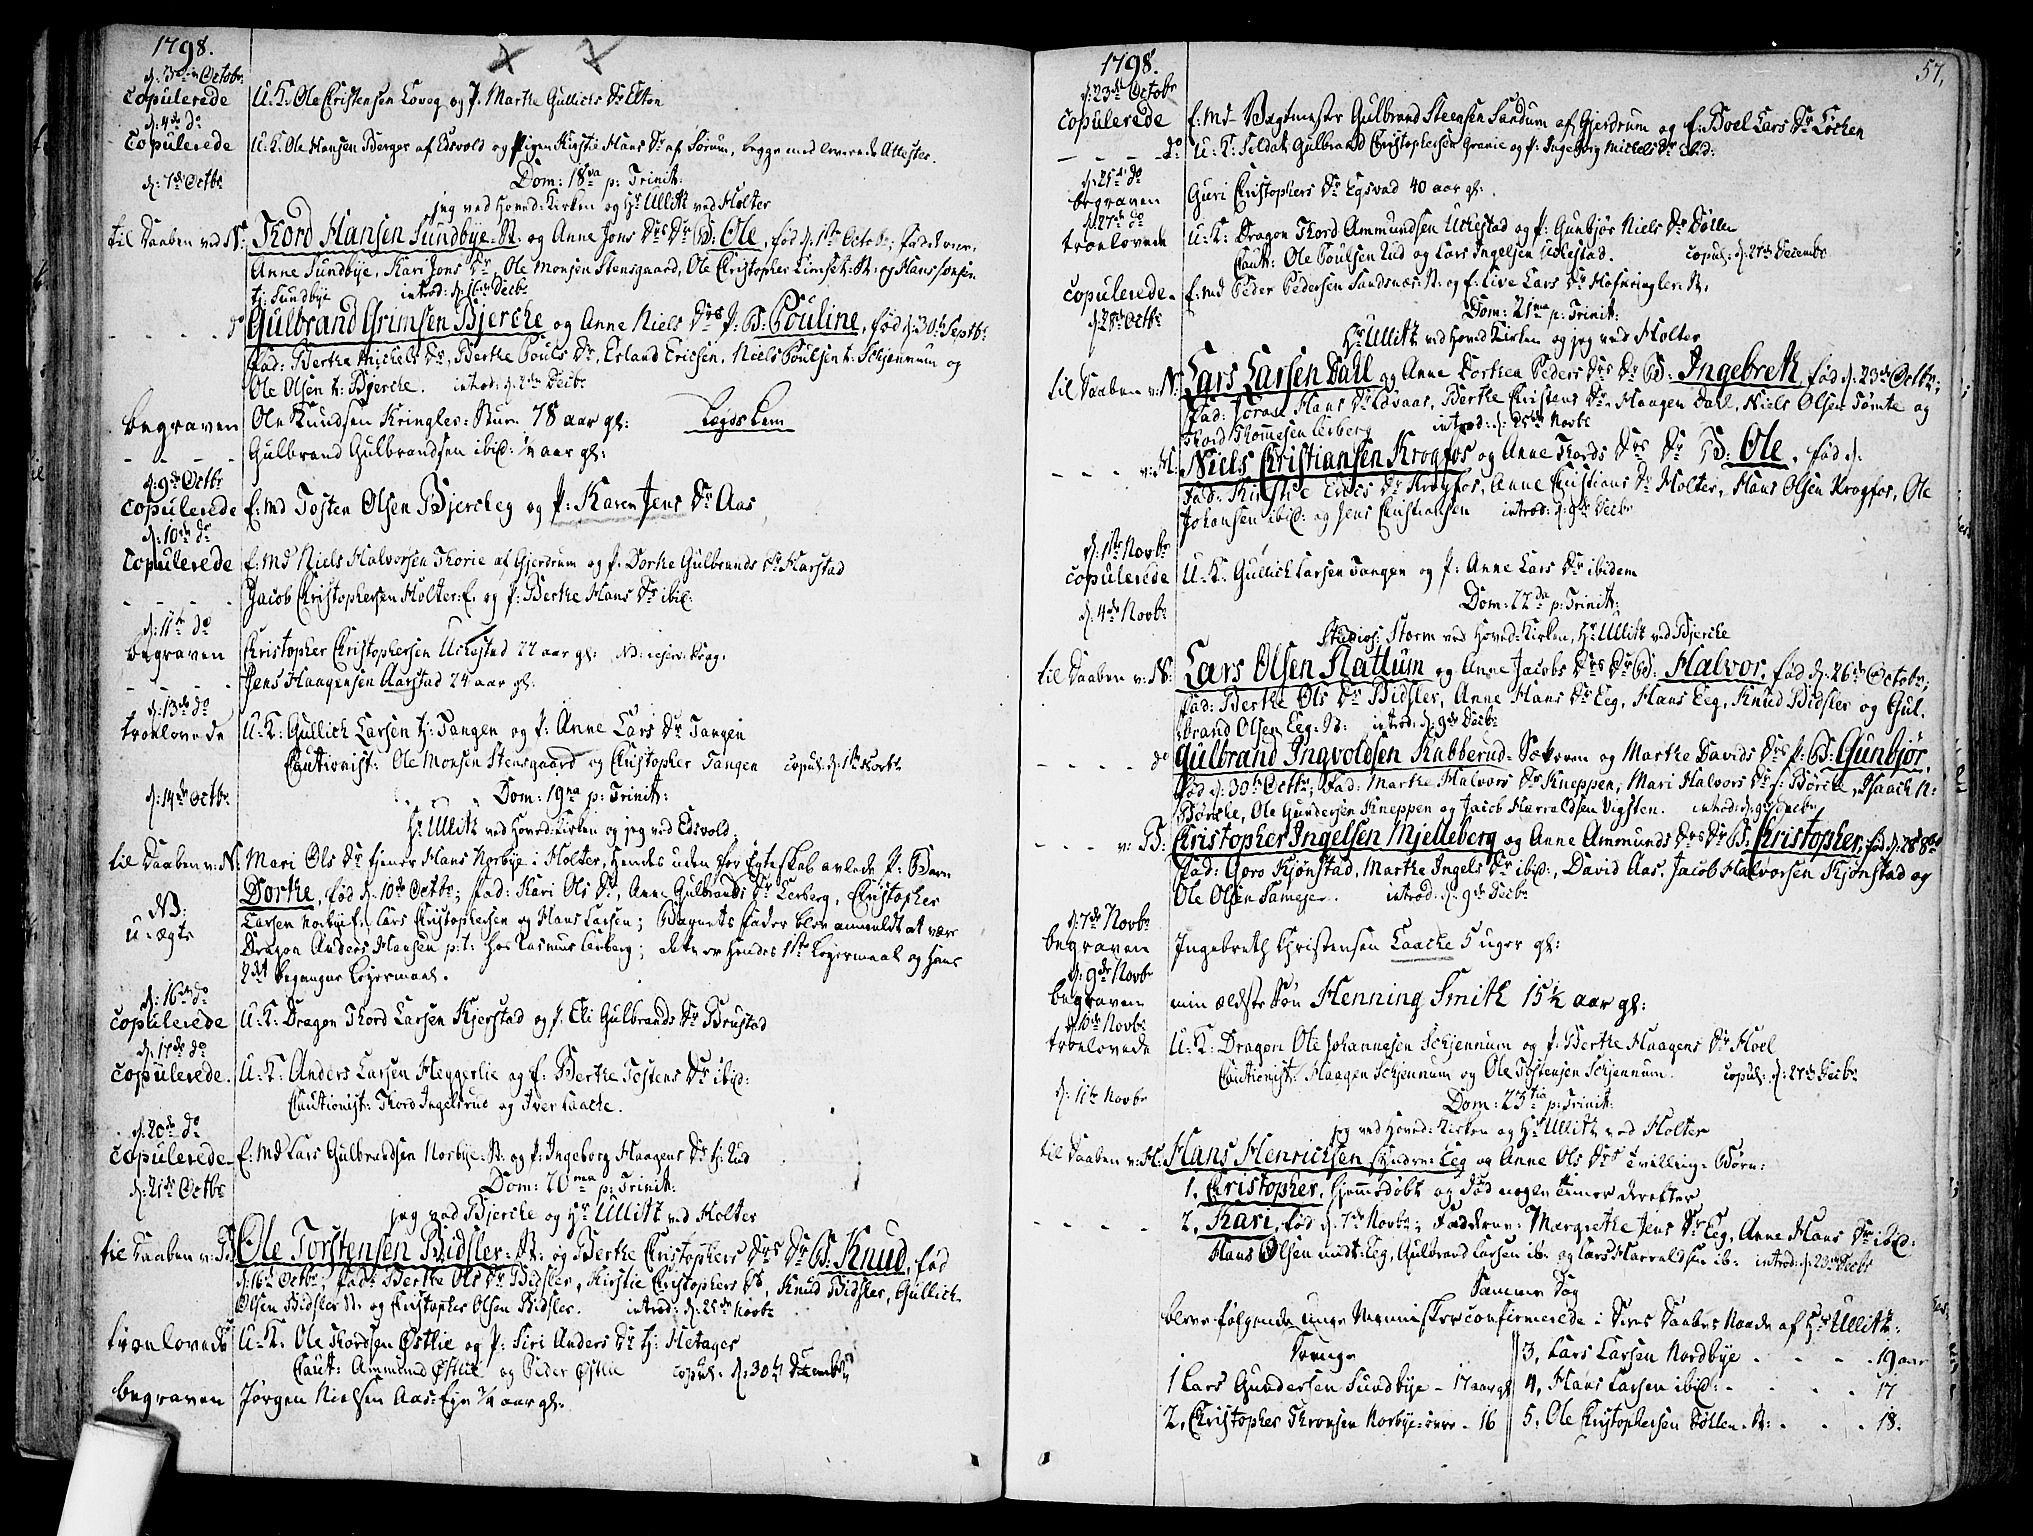 1798.
d: 3die Octobr:
copulerede U: K: Ole Christensen Loveg og P. Marthe Gullichs Dr Elton
d: 4de do
copulerede U: K: Ole Hansen Berger af Edsvold og Pigen Kirstie Hans Dr af Sørum, begge med leverede Attester.
d: 7de Octbr Dom: 18va p: Trinit:
jeg ved Hoved-Kirken og Hr Ullitz ved Holter
til Daaben ved N: Thord Hansen Sundbye-N. og Anne Jons Drs Dr B: Ole, fød d: 1ste Octobr; fadderne:
Anne Sundbye, Kari Jons Dr, Ole Monsen Stensgaard, Ole Christopher Limset-N: og Hans
tj: Sundbye introd: d: Decbr
do Gulbrand Grimsen Bjerche og Anne Niels Drs P: B: Pouline, fød d: 30te Septbr:
fad: Berthe Michels Dr, Berthe Pouls Dr, Erland Ericsen, Niels Poulsen t: Schjennum og
Ole Olsen t: Bjerche. introd: d: Decbr
begraven Ole Knudsen Kringler: 78 aar gl: Lægds Lem
Gulbrand Gulbrandsen ibid: 1/4 aar gl:
d: 9de Octbr
copulerede E: Md Tosten Olsen Bjerkeg og P: Karen Jens Dr Aas
d: 10de do
copulerede E: Md Niels Halvorsen Thorie af Gjerdrum og P. Dorthe Gulbrands Dr Harstad
Jacob Christophersen Holter: E. og P: Berthe Hans Dr ibid:
d: 11te do
begraven Christopher Christophersen Uthestad 22 aar gl:
Jens Haagensen Aarstad 24 aar gl:
d: 13de do
troelovede U: K: Gullich Larsen tj: Tangen og P: Anne Lars Dr Tangen
Cautionist: Ole Monsen Stensgaard og Christopher Tangen copul: d: 1ste Novbr
d: 14de Octbr Dom: 19na p: Trinit:
Hr Ullitz ved Hoved-Kirken og jeg ved Edsvold.
til Daaben v: N: Mari Ols Dr tjener Hans Norbye i Holter, hendes uden for Egteskab avlede P: Barn
Dorthe, fød d: 10de Octbr; fad: Kari Ols Dr, Anne Gulbrands Dr Lerberg, Christopher
NB: Larsen Norbye, Lars Christophersen og Hans Larsen; Barnets Fader blev anmeldt at være
u-ægte Dragon Anders Hansen p:t: hos Rasmus Lerberg; dette er hendes 1ste Lejermaal og hans
2det begangne Lejermaal.
d: 16de do
copulerede U: K: Dragon Thord Larsen Kjerstad og P. Eli Gulbrands Dr Brustad
d: 17de do
copulerede. U: K: Anders Larsen Heggerlie og E: Berthe Tostens Dr ibid:
Cautionist: Thord Ingelsrud og Iver Laache.
d: 20de do
copulerede E: Md Lars Gulbrandsen Norbye-N: og P: Ingeborg Haagens Dr tj: Rud
d: 21de Octbr Dom: 20ma p: Trinit:
jeg ved Bjerche og Hr Ullitz ved Holter
til Daaben v: B: Ole Torstensen Bidsler-N: og Berthe Christophers Drs Dr B: Knud, fød
d: 16de Octbr; fad: Berthe Ols Dr Bidsler, Kirstie Christophers Dr, Knud Bidsler, Gullich
Olsen Bidsler N: og Christopher Olsen Bidsler. introd: d: 25de Novbr
troelovede U: K: Ole Thordsen Østlie og P: Siri Anders Dr tj: Hetager
Caut: Ammund Østlie og Peder Østlie copul: d: 30te Decembr
begraven Jørgen Nielsen Aas-Eje 1/4 aar gl:
1798. 57.
d: 23de Octobr
copulerede E: Md Vægtmester Gulbrand Steensen Sandum af Gjerdrum og E: Boel Lars Dr Løchen
do U: K: Soldat Gulbrand Christophersen Granie og P: Ingeborg Michels Dr ibid:
d: 25de do
begraven Guri Christophers Dr Egsvad 40 aar gl:
d: 27de do
troelovede U: K: Dragon Thord Ammundsen Uthestad og P: Gunbjør Niels Dr Døllen
Caut: Ole Poulsen Rud og Lars Ingelsen Uthestad. copul: d: 27de Decembr
copulerede. E: Md Peder Pedersen Sandsnæs-N: og E: Live Lars Dr Hofkringler-N.
d: 28de Octbr Dom: 21ma p: Trinit:
Hr Ullitz ved Hoved Kirken og jeg ved Holter
til Daaben v: N: Lars Larsen Dahl og Anne Dorthea Peders Drs Dr B: Ingebreth, fød d: 23de Octbr;
fad: Joran Hans Dr Edvaas, Berthe Christens Dr, Haagen Dahl, Niels Olsen Tømte og
Thord Thommesen Lerberg introd: d: 25de Novbr
v: H: Niels Christiansen Krogfos og Anne Thords Drs Dr B: Ole, fød d.
fad: Kirstie Eriks Dr Krogfos, Anne Christians Dr Holter, Hans Olsen Krogfos, Ole
Johansen ibid: og Jens Christiansen introd: d: 9de Decbr
d: 1ste Novbr
copulerede U: K: Gullich Larsen Tangen og P: Anne Lars Dr ibidem
d: 4de Novbr Dom: 22da p: Trinit:
Studios: Storm ved Hoved-Kirken, Hr Ullitz ved Bjerche
til Daaben v: N: Lars Olsen Hattum og Anne Jacobs Drs Dr B: Halvor, fød d: 26de Octobr;
fad: Berthe Ols Dr Bidsler, Anne Hans Dr Eeg, Hans Eeg, Knud Bidsler og Gul-
brand Olsen Eeg-N: introd: d: 9de Decbr
do Gulbrand Ingvoldsen Rabberud-Søkven og Marthe Davids Drs P: B: Gunbjør,
fød d: 30te Octbr; fad: Marthe Halvors Dr Kneppen, Mari Halvors Dr f: Børche, Isaach N:
Børche, Ole Gundersen Kneppen og Jacob Harraldsen Vigsten. introd: d: 9de Decbr
v: B: Christopher Ingelsen Mjelleberg og Anne Ammunds Drs Dr B: Christopher, fød d: 28 8br
fad: Goro Kjønstad, Marthe Ingels Dr ibid:, David Aas, Jacob Halvorsen Kjønstad og
Ole Olsen Samejer. introd: d: 9de Decbr
d: 7de Novbr
begraven Ingebreth Christensen Laache 5 uger gl:
d: 9de Novbr
begraven min ældste Søn Henning Smith 15 1/2 aar gl:
d: 10de Novbr
troelovede U: K: Dragon Ole Johannesen Schjennum og P: Berthe Haagens Dr Hoel
Cautionist: Haagen Schjennum og Ole Tostensen Schjennum. copul: d: 27de Decbr
d: 11te Novbr Dom: 23tia p: Trinit:
jeg ved Hoved-Kirken og Hr Ullitz ved Holter
til Daaben v: H: Hans Henrichsen Eeg og Anne Ols Drs Tvilling-Børn:
1. Christopher, hjemmedøbt og død nogen timer derefter
2. Kari, fød d: 7de Novbr; Fadderne: Margrethe Jens Dr Eeg, Anne Hans Dr ibid:
Hans Olsen midt-Eeg, Gulbrand Larsen ib: og Lars Harraldsen ib: introd: d: 23de Decbr
Samme Dag
bleve følgende unge Mennisker confirmerede i Deres Daabes Naade af Hr Ullitz:
Drenge
1 Lars Gundersen Sundbye - 17 aar gl
2, Christopher Thronsen Norbye - 16
3, Lars Larsen Nordbye . . . . . 19 aar
4, Hans Larsen ibid: . . . . . 17
5, Ole Christophersen Døllen-N: . . . . 18.